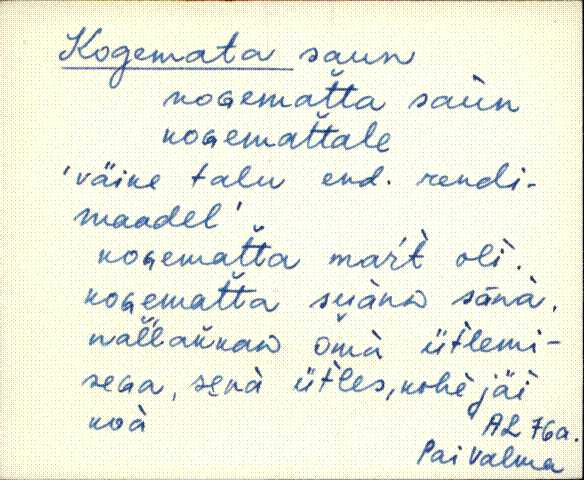 Kogemata saun
koɢematt̆a saùn
koɢematt̆ale
'väike talu end. rendi-
maadel'
koɢematt̆a mar't̀ olì.
koɢematt̆a sänà.
ömà ütlemi-
seɢa, senà ütles, kohè jäi
koà
AL 76a.
Pai Valma